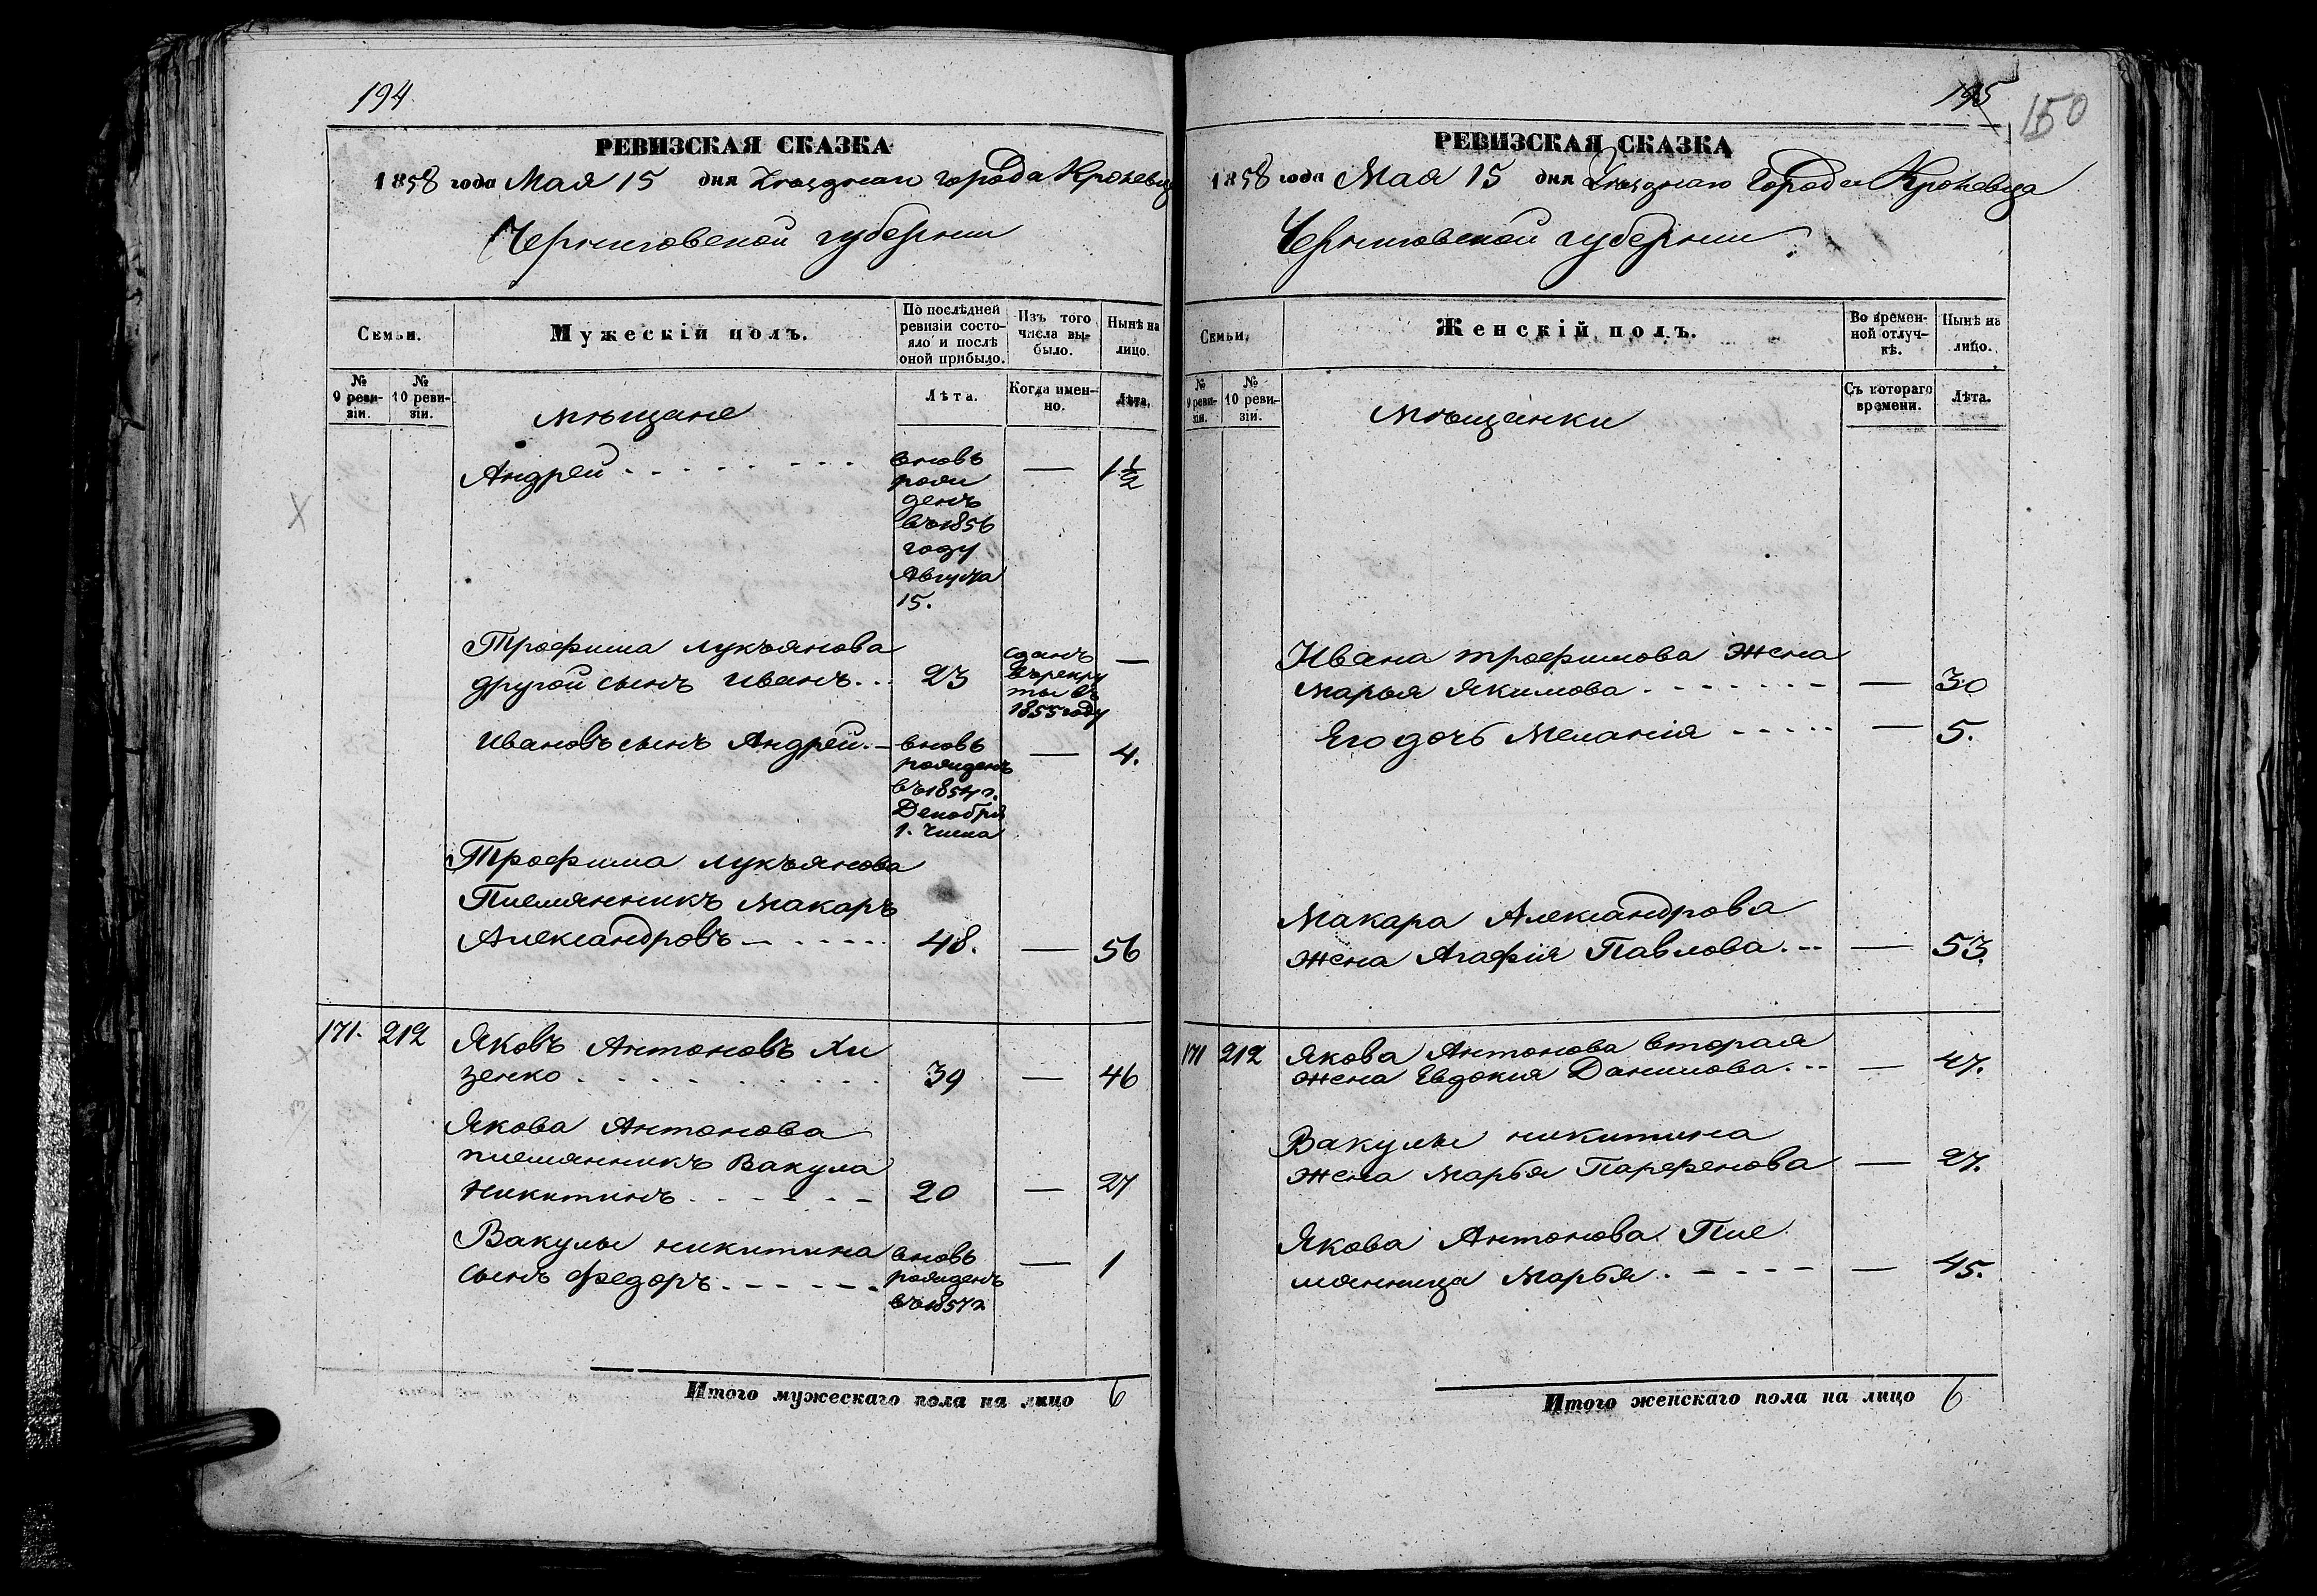 194
РЕВИЗСКАЯ СКАЗКА
1858 года Мая 15 дня города Кролевца
Черниговской губернии
Семьи.
Мужескій полъ.
По послѣдней ревизіи состояло и послѣ оной прибыло.
Изъ того числа выбыло.
Нынѣ на лицо.
№ 9 ревизіи.
№ 10 ревизіи.
мѣщане
Лѣта.
Когда именно.
Лѣта.
Андрей
вновь
рож
денъ
въ 1856
году
Августа
15.
—
1 1/2
Трофима Лукъянова
другой сынъ Иванъ
23
сданъ
въ рекру
ты въ
1855 году
—
Ивановъ сынъ Андрей
вновь
рожденъ
въ 1854 г.
Декабря
1. числа
—
4.
Трофима Лукъянова
Племянникъ Макаръ
Александровъ
48.
—
56
171. 212
Яковъ Антоновъ Хи
зенко
39
—
46
Якова Антонова
племянникъ Вакула
Никитинъ
20
—
27
Вакулы Никитина
сынъ Федоръ
вновь
рожденъ
въ 1857 г
—
1
Итого мужескаго пола на лицо 6
195
150
РЕВИЗСКАЯ СКАЗКА
1858 года Мая 15 дня города Кролевца
Черниговской губернии
Семьи.
Женскій полъ.
Во временной отлучкѣ.
Нынѣ на лицо.
№ 9 ревизіи.
№ 10 ревизіи.
мѣщанки
Съ котораго времени.
Лѣта.
Ивана Трофимова жена
Марья Якимова — 30
Его дочь Меланія — 5.
Макара Александрова
жена Агафия Павлова — 53.
171 212
Якова Антонова вторая
жена Евдокия Данилова — 47.
Вакулы Никитина
жена Марья Парфенова — 27.
Якова Антонова Пле
мянница Марья — 45.
Итого женскаго пола на лицо 6